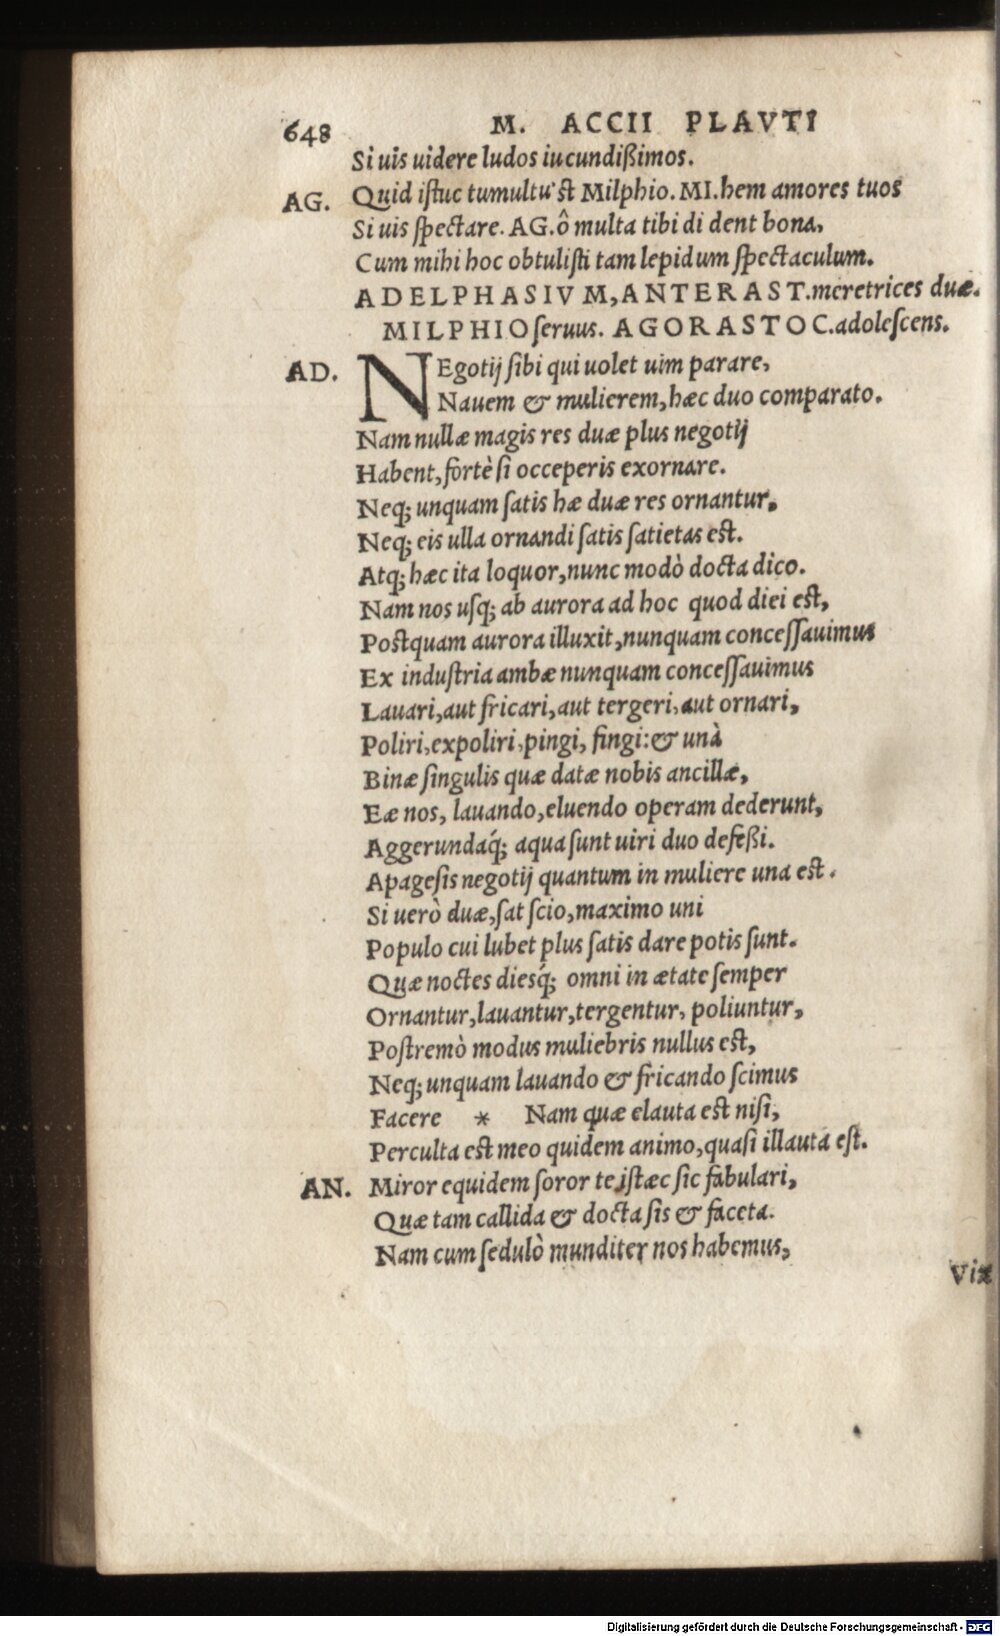 648 M. ACCII PLAVTI
Si uis uidere ludos iucundißimos.
AG. Quid iſtuc tumultu'st Milphio. MI. hem amores tuos
Si uis ſpectare. AG. ô multa tibi di dent bona,
Cum mihi hoc obtuliſti tam lepidum ſpectaculum.
ADELPHASIVM, ANTERAST. meretrices duæ.
MILPHIO ſeruus. AGORASTOC. adoleſcens.
AD. NEgotij ſibi qui uolet uim parare,
Nauem & mulierem, hæc duo comparato.
Nam nullæ magis res duæ plus negotij
Habent, fortè ſi occeperis exornare.
Neq; unquam ſatis hæ duæ res ornantur,
Neq; eis ulla ornandi ſatis ſatietas est.
Atq; hæc ita loquor, nunc modò docta dico.
Nam nos uſq; ab aurora ad hoc quod diei est,
Postquam aurora illuxit, nunquam conceſſauimus
Ex induſtria ambæ nunquam conceſſauimus
Lauari, aut fricari, aut tergeri, aut ornari,
Poliri, expoliri, pingi, fingi: & unà
Binæ ſingulis quæ datæ nobis ancillæ,
Eæ nos, lauando, eluendo operam dederunt,
Aggerundaq́; aqua ſunt uiri duo defeßi.
Apageſis negotij quantum in muliere una est.
Si uerò duæ, ſat ſcio, maximo uni
Populo cui lubet plus ſatis dare potis ſunt.
Quæ noctes dieſq́; omni in ætate ſemper
Ornantur, lauantur, tergentur, poliuntur,
Poſtremò modus muliebris nullus est,
Neq; unquam lauando & fricando ſcimus
Facere * Nam quæ elauta est niſi,
Perculta est meo quidem animo, quaſi illauta eſt.
AN. Miror equidem ſoror te iſtæc ſic fabulari,
Quæ tam callida & docta ſis & faceta.
Nam cum ſedulò munditer nos habemus,
Vix
Digitalisierung gefördert durch die Deutsche Forschungsgemeinschaft - DFG